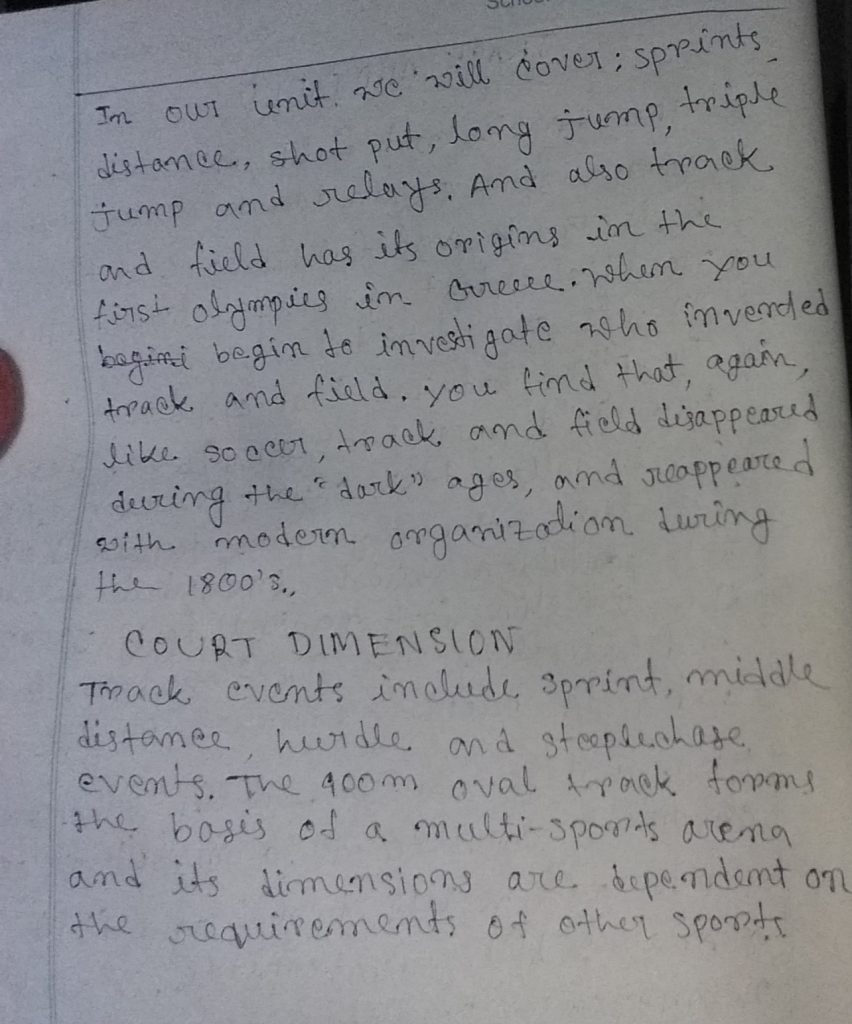 In our unit. we will cover; sprints
distance, shot put, long jump, triple
jump and relays. And also track
and field has its origins in the
first olympics in Greece. When you
begini begin to investigate who invended
track and field. you find that, again,
like soccer, track and field disappeared
during the "dark" ages, and reappeared
with modern organization during
the 1800's.,
COURT DIMENSION
Track events include sprint, middle
distance, hurdle and steeplechase
events. The 400m oval track forms
the basis of a multi-sports arena
and its dimensions are dependent on
the requirements of other sports